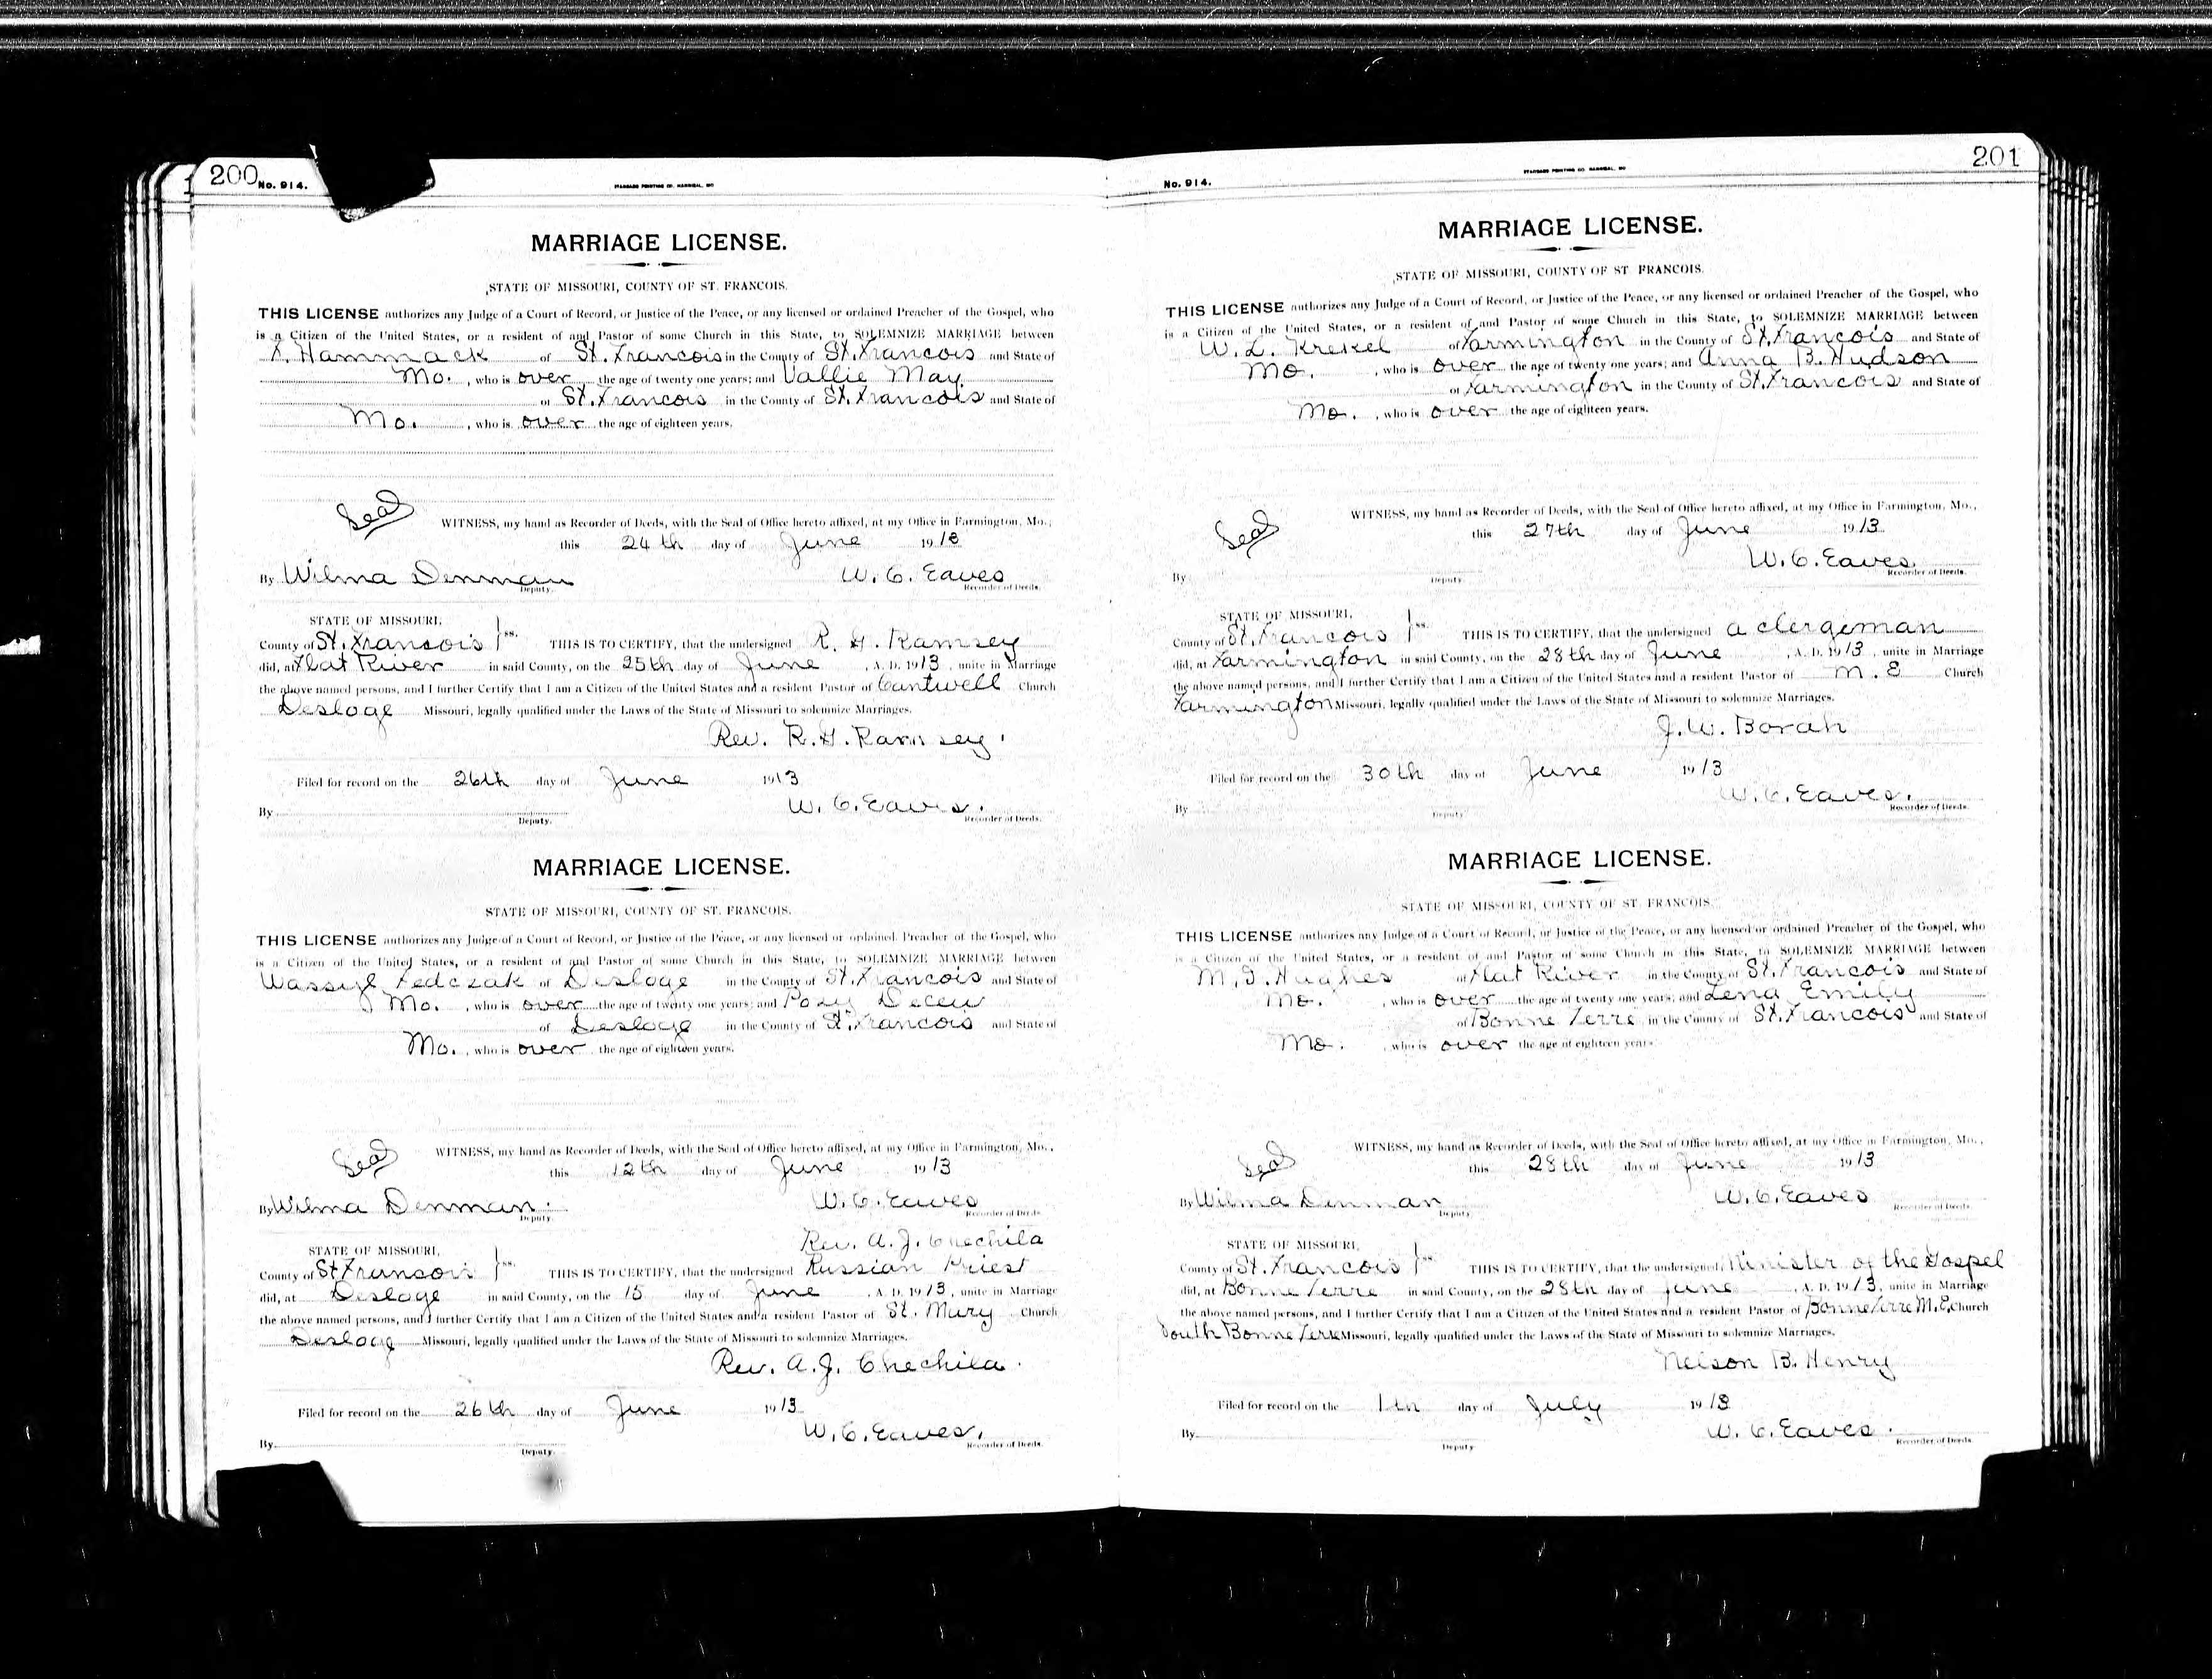 200
No. 914.
STANDARD PRINTING CO. HANNIBAL, MO
MARRIAGE LICENSE.
STATE OF MISSOURI, COUNTY OF ST. FRANCOIS.
THIS LICENSE authorizes any Judge of a Court of Record, or Justice of the Peace, or any licensed or ordained Preacher of the Gospel, who
is a Citizen of the United States, or a resident of and Pastor of some Church in this State, to SOLEMNIZE MARRIAGE between
Hammack of St. Francois in the County of St. Francois and State of
Mo., who is over the age of twenty one years; and Vallie May
of St. Francois in the County of St. Francois and State of
Mo., who is over the age of eighteen years.
Seal
WITNESS, my hand as Recorder of Deeds, with the Seal of Office hereto affixed, at my Office in Farmington, Mo.,
this 24th day of June 1913
By Wilma Denman W. C. Eaves
Deputy. Recorder of Deeds.
STATE OF MISSOURI,
County of St. Francois } ss. THIS IS TO CERTIFY, that the undersigned R. H. Ramsey
did, at Flat River in said County, on the 25th day of June, A. D. 1913, unite in Marriage
the above named persons, and I further Certify that I am a Citizen of the United States and a resident Pastor of Cantwell Church
Desloge Missouri, legally qualified under the Laws of the State of Missouri to solemnize Marriages.
Rev. R. H. Ramsey.
Filed for record on the 26th day of June 1913
W. C. Eaves.
By Deputy. Recorder of Deeds.
MARRIAGE LICENSE.
STATE OF MISSOURI, COUNTY OF ST. FRANCOIS.
THIS LICENSE authorizes any Judge of a Court of Record, or Justice of the Peace, or any licensed or ordained Preacher of the Gospel, who
is a Citizen of the United States, or a resident of and Pastor of some Church in this State, to SOLEMNIZE MARRIAGE between
Wassyl Fedczak of Desloge in the County of St. Francois and State of
Mo., who is over the age of twenty one years; and Pozy Deceu
of Desloge in the County of St. Francois and State of
Mo., who is over the age of eighteen years.
Seal
WITNESS, my hand as Recorder of Deeds, with the Seal of Office hereto affixed, at my Office in Farmington, Mo.,
this 12th day of June 1913
By Wilma Denman. W. C. Eaves
Deputy. Recorder of Deeds
Rev. A. J. Chechila
STATE OF MISSOURI,
County of St Francois } ss. THIS IS TO CERTIFY, that the undersigned Russian Priest
did, at Desloge in said County, on the 15 day of June, A. D. 1913, unite in Marriage
the above named persons, and I further Certify that I am a Citizen of the United States and a resident Pastor of St. Mary Church
Desloge Missouri, legally qualified under the Laws of the State of Missouri to solemnize Marriages.
Rev. A. J. Chechila.
Filed for record on the 26th day of June 1913
W. C. Eaves.
By Deputy. Recorder of Deeds.
201
No. 914.
STANDARD PRINTING CO. HANNIBAL, MO
MARRIAGE LICENSE.
STATE OF MISSOURI, COUNTY OF ST FRANCOIS.
THIS LICENSE authorizes any Judge of a Court of Record, or Justice of the Peace, or any licensed or ordained Preacher of the Gospel, who
is a Citizen of the United States, or a resident of and Pastor of some Church in this State, to SOLEMNIZE MARRIAGE between
W. L. Krekel of Farmington in the County of St. Francois and State of
Mo., who is over the age of twenty one years; and Anna B. Hudson
of Farmington in the County of St. Francois and State of
Mo., who is over the age of eighteen years.
Seal
WITNESS, my hand as Recorder of Deeds, with the Seal of Office hereto affixed, at my Office in Farmington, Mo.,
this 27th day of June 1913
W. C. Eaves.
By Deputy. Recorder of Deeds.
STATE OF MISSOURI,
County of St. Francois } ss. THIS IS TO CERTIFY, that the undersigned a clergeman
did, at Farmington in said County, on the 28th day of June, A. D. 1913, unite in Marriage
the above named persons, and I further Certify that I am a Citizen of the United States and a resident Pastor of M. E Church
Farmington Missouri, legally qualified under the Laws of the State of Missouri to solemnize Marriages.
J. W. Borah
Filed for record on the 30th day of June 1913
W. C. Eaves.
By Deputy Recorder of Deeds.
MARRIAGE LICENSE.
STATE OF MISSOURI, COUNTY OF ST FRANCOIS
THIS LICENSE authorizes any Judge of a Court of Record, or Justice of the Peace, or any licensed or ordained Preacher of the Gospel, who
is a Citizen of the United States, or a resident of and Pastor of some Church in this State, to SOLEMNIZE MARRIAGE between
M. I. Hughes of Flat River in the County of St. Francois and State of
Mo., who is over the age of twenty one years; and Lena Emily
of Bonne Terre in the County of St. Francois and State of
Mo., who is over the age of eighteen years.
Seal
WITNESS, my hand as Recorder of Deeds, with the Seal of Office hereto affixed, at my Office in Farmington, Mo.,
this 28th day of June 1913
By Wilma Denman W. C. Eaves
Deputy Recorder of Deeds
STATE OF MISSOURI,
County of St. Francois } ss. THIS IS TO CERTIFY, that the undersigned Minister of the Gospel
did, at Bonne Terre in said County, on the 28th day of June, A. D. 1913, unite in Marriage
the above named persons, and I further Certify that I am a Citizen of the United States and a resident Pastor of Bonne Terre M. E. Church
South Bonne Terre Missouri, legally qualified under the Laws of the State of Missouri to solemnize Marriages.
Nelson B. Henry
Filed for record on the 1th day of July 1913
W. C. Eaves.
By Deputy Recorder of Deeds